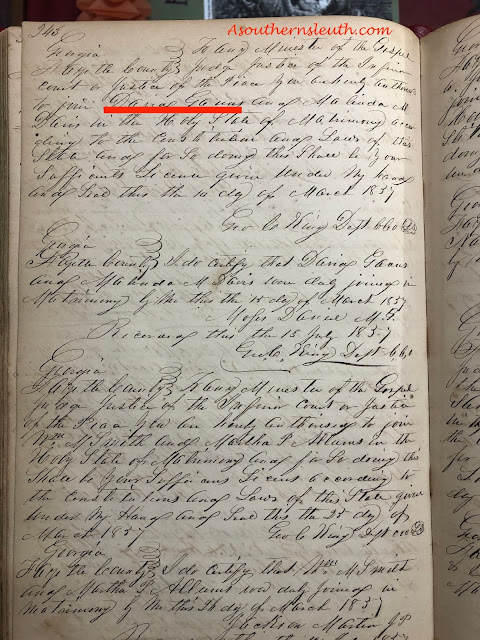 Asouthernsleuth.com
345
Georgia To any Minister of the Gospel
Fayette County Judge Justice of the Inferior
court or Justice of the Peace you are hereby authorised
to join and Malinda M
Davis in the Holy State of Matrimony accor
ding to the Constitution and Laws of this
State and for So doing this Shall be your
Sufficient License given Under My hand
and Seal this the 10 day of March 1857
Geo C King Dept CCO
Georgia
Fayette County I do certify that David
and Malinda M Davis were duly joined in
Matrimony by Me this the 15 day of March 1857
Moses M.G.
Recorded this the 15 July 1857
Geo C King Dept CCO
Georgia
Fayette County To any Minister of the Gospel
Judge Justice of the Inferior Court or Justice
of the Peace You are hereby Authorised to join
Wm M Smith and Martha P Adams in the
Holy State of Matrimony and for So doing this
Shall be Your Sufficient License according to
the Constitutions and Laws of this State given
Under My Hand and Seal this the 25 day of
March 1857 Geo C King Dept CCO
Georgia
Fayette County I do certify that Wm M Smith
and Martha P Adams were duly joined in
Matrimony by Me this day of March 1857
Jackson Martin J.P.